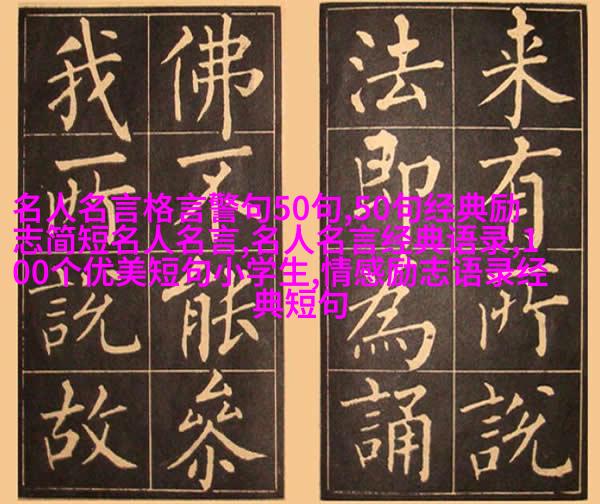 名人名言格言警句50句,50句经典励
志简短名人名言,名人名言经典语录,1
00个优美短句小学生,情感励志语录经
典短句
来有所說
法即為誦
佛不能參
我所說故